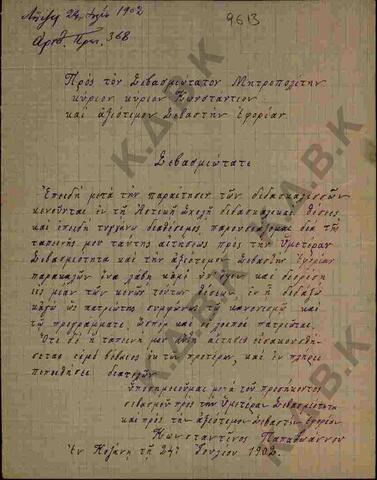 Ἐλήφθη 24 Ἰουλίου 1902
Ἀριθ. Πρω. 368
9613
Πρὸς τὸν Σεβασμιώτατον Μητροπολίτην
κύριον κύριον Κωνστάντιον
καὶ ἀξιότιμον Σεβαστὴν Ἐφορίαν.
Σεβασμιώτατε
Ἐπειδὴ μετὰ τὴν παραίτησιν τῶν διδασκαλισσῶν
κενοῦνται ἐν τῇ Ἀστικῇ Σχολῇ διδασκαλικαὶ θέσεις
καὶ ἐπειδὴ τυγχάνω διαθέσιμος, παρουσιάζομαι διὰ τῆς
ταπεινῆς μου ταύτης αἰτήσεως πρὸς τὴν Ὑμετέραν
Σεβασμιότητα καὶ τὴν ἀξιότιμον Σεβαστὴν Ἐφορίαν
παρακαλῶν ἵνα λάβῃ κἀμὲ ὑπ' ὄψιν καὶ διορίσῃ
εἰς μίαν τῶν κενῶν τούτων θέσεων, ἐν ᾗ διδάξω
κἀγὼ ὡς πατριώτης συμφώνως τῷ κανονισμῷ καὶ
τῷ προγράμματι, ὥσπερ καὶ οἱ λοιποὶ πατριῶται.
Ὅτι δὲ ἡ ταπεινή μου αὕτη αἴτησις εἰσακουσθή-
σεται εἰμὶ βέβαιος ἐκ τῶν προτέρων, καὶ ἐν πλήρει
πεποιθήσει διατελῶν
Ὑποσημειοῦμαι μετὰ τοῦ προσήκοντος
σεβασμοῦ πρὸς τὴν Ὑμετέραν Σεβασμιότητα
καὶ πρὸς τὴν ἀξιότιμον Σεβαστὴν Ἐφορίαν
Κωνσταντῖνος Παπαϊωάννου
Ἐν Κοζάνῃ τῇ 24ῃ Ἰουλίου 1902.
Κ.Δ.Β.Κ